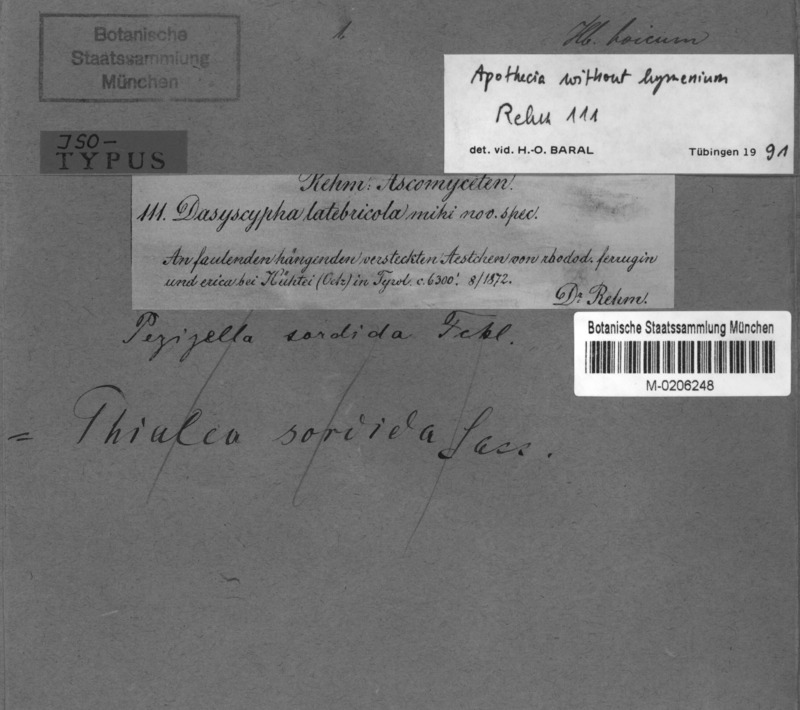 Botanische
Staatssammlung
München
1
Hb. boicum
Apothecia without hymenium
Rehm 111
det. vid. H.-O. BARAL
Tübingen 19 91
ISO-
TYPUS
Rehm: Ascomyceten.
111. Dasyscypha latebricola mihi nov. spec.
An faulenden hängenden versteckten Aestchen von rhodod. ferrugin
und erica bei Kühtei (Oetz) in Tyrol c. 6300'. 8/1872.
Dr Rehm.
Pezizella sordida Fckl.
Botanische Staatssammlung München
M-0206248
= Thialea sordida Sacc.